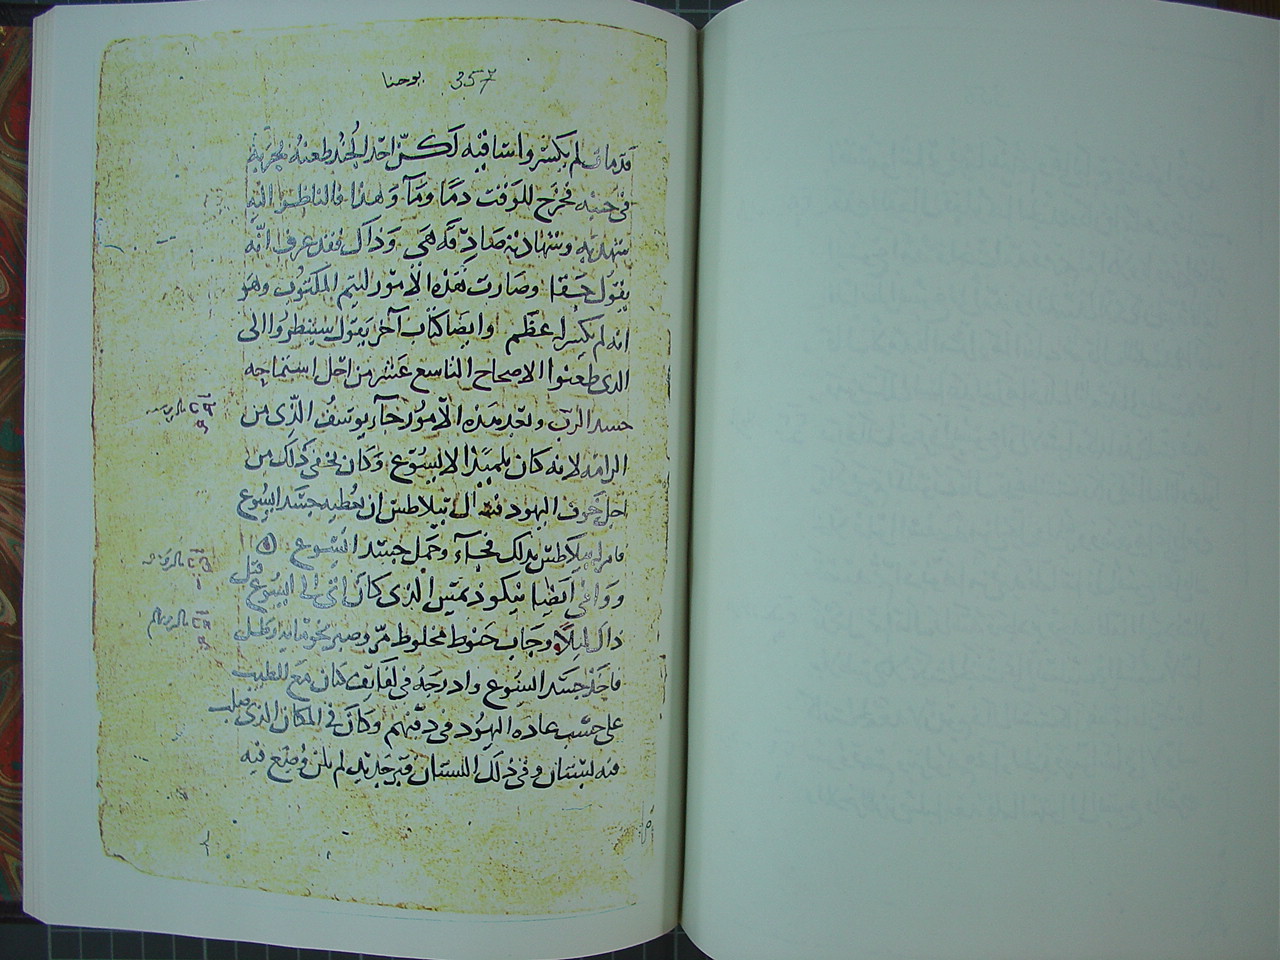 يوحنا 357
قد مات لم يكسروا ساقيه لكنّ احد الجند طعنه بحربة
في جنبه فخرج للوقت دمًا ومآ وهذا فالناظر اليه
شهد به وشهادته صادقه هي وذاك فقد عرف انّه
يقول حقا وصارت هذه الامور ليتم المكتوب وهو
انه لم يكسر له عظم وايضا كتاب آخر يقول سينظروا الى
الذى طعنوا الاصحاح التاسع عشر من اجل استماحه
جسد الربّ وبعد هذه الامور جآء يوسف الذّى من
الرامه لانه كان تلميذا لايسوع وكان يخفي ذلك من
اجل خوف اليهود فسال بيلاطس ان يعطيه جسد ايسوع
فامر بيلاطس بذلك فجآء وحمل جسد ايسوع
ووافي ايضا نيكوديمس الذى كان اتى الى ايسوع قبل
ذاك ليلًا وجاب حنوط مخلوط مرّ وصبر نحو مايه رطل
فاخذ جسد ايسوع وادرجه في لفايف كتان مع للطيب
على حسب عاده اليهود في دفنهم وكان في المكان الذى صلب
فيه بستان وفي ذلك البستان قبر جديد لم يكن وُضع فيه